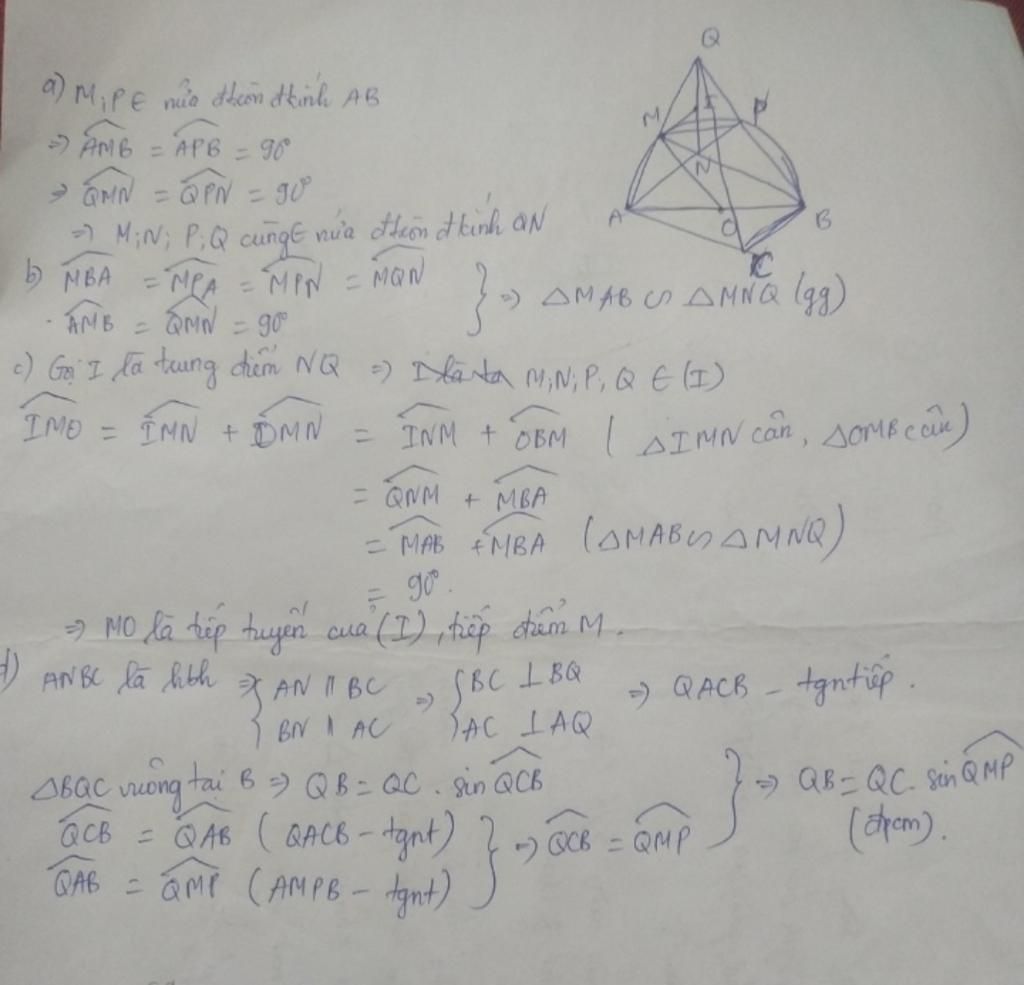 a) M; P ∈ nửa đtròn đkính AB
⇒ \widehat{AMB} = \widehat{APB} = 90°
⇒ \widehat{QMN} = \widehat{QPN} = 90°
⇒ M; N; P; Q cùng ∈ nửa đtròn đkính QN
b) \widehat{MBA} = \widehat{MPA} = \widehat{MPN} = \widehat{MQN}
\widehat{AMB} = \widehat{QMN} = 90° } ⇒ △MAB ∽ △MNQ (gg)
c) Gọi I là trung điểm NQ ⇒ M; N; P; Q ∈ (I)
\widehat{IMO} = \widehat{IMN} + \widehat{OMN} = \widehat{INM} + \widehat{OBM} ( △IMN cân, △OMB cân)
= \widehat{QNM} + \widehat{MBA}
= \widehat{MAB} + \widehat{MBA} (△MAB ∽ △MNQ)
= 90°.
⇒ MO là tiếp tuyến của (I), tiếp điểm M.
d) ANBC là hbh ⇒ { AN // BC ⇒ { BC ⊥ BQ ⇒ QACB – tgntiếp.
BN // AC AC ⊥ AQ
△BQC vuông tại B ⇒ QB = QC . sin \widehat{QCB}
\widehat{QCB} = \widehat{QAB} (QACB – tgnt)
\widehat{QAB} = \widehat{QMP} (AMPB – tgnt) } ⇒ \widehat{QCB} = \widehat{QMP} } ⇒ QB = QC. sin \widehat{QMP}
(đpcm).
Q
M
I
P
N
A
O
B
C